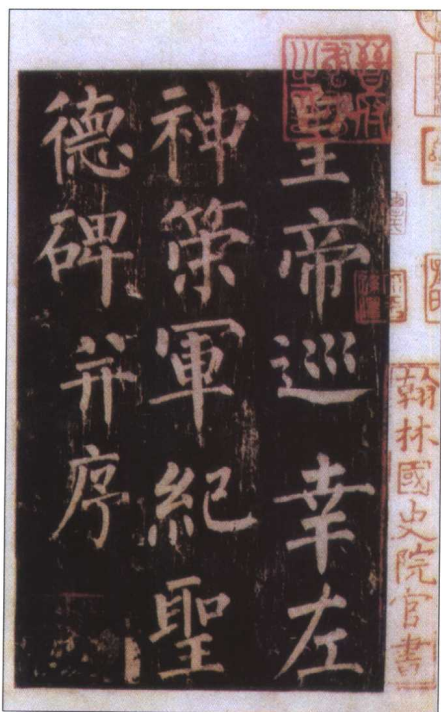 皇帝巡幸左
神策軍紀聖
德碑并序
翰林國史院官書
晉府